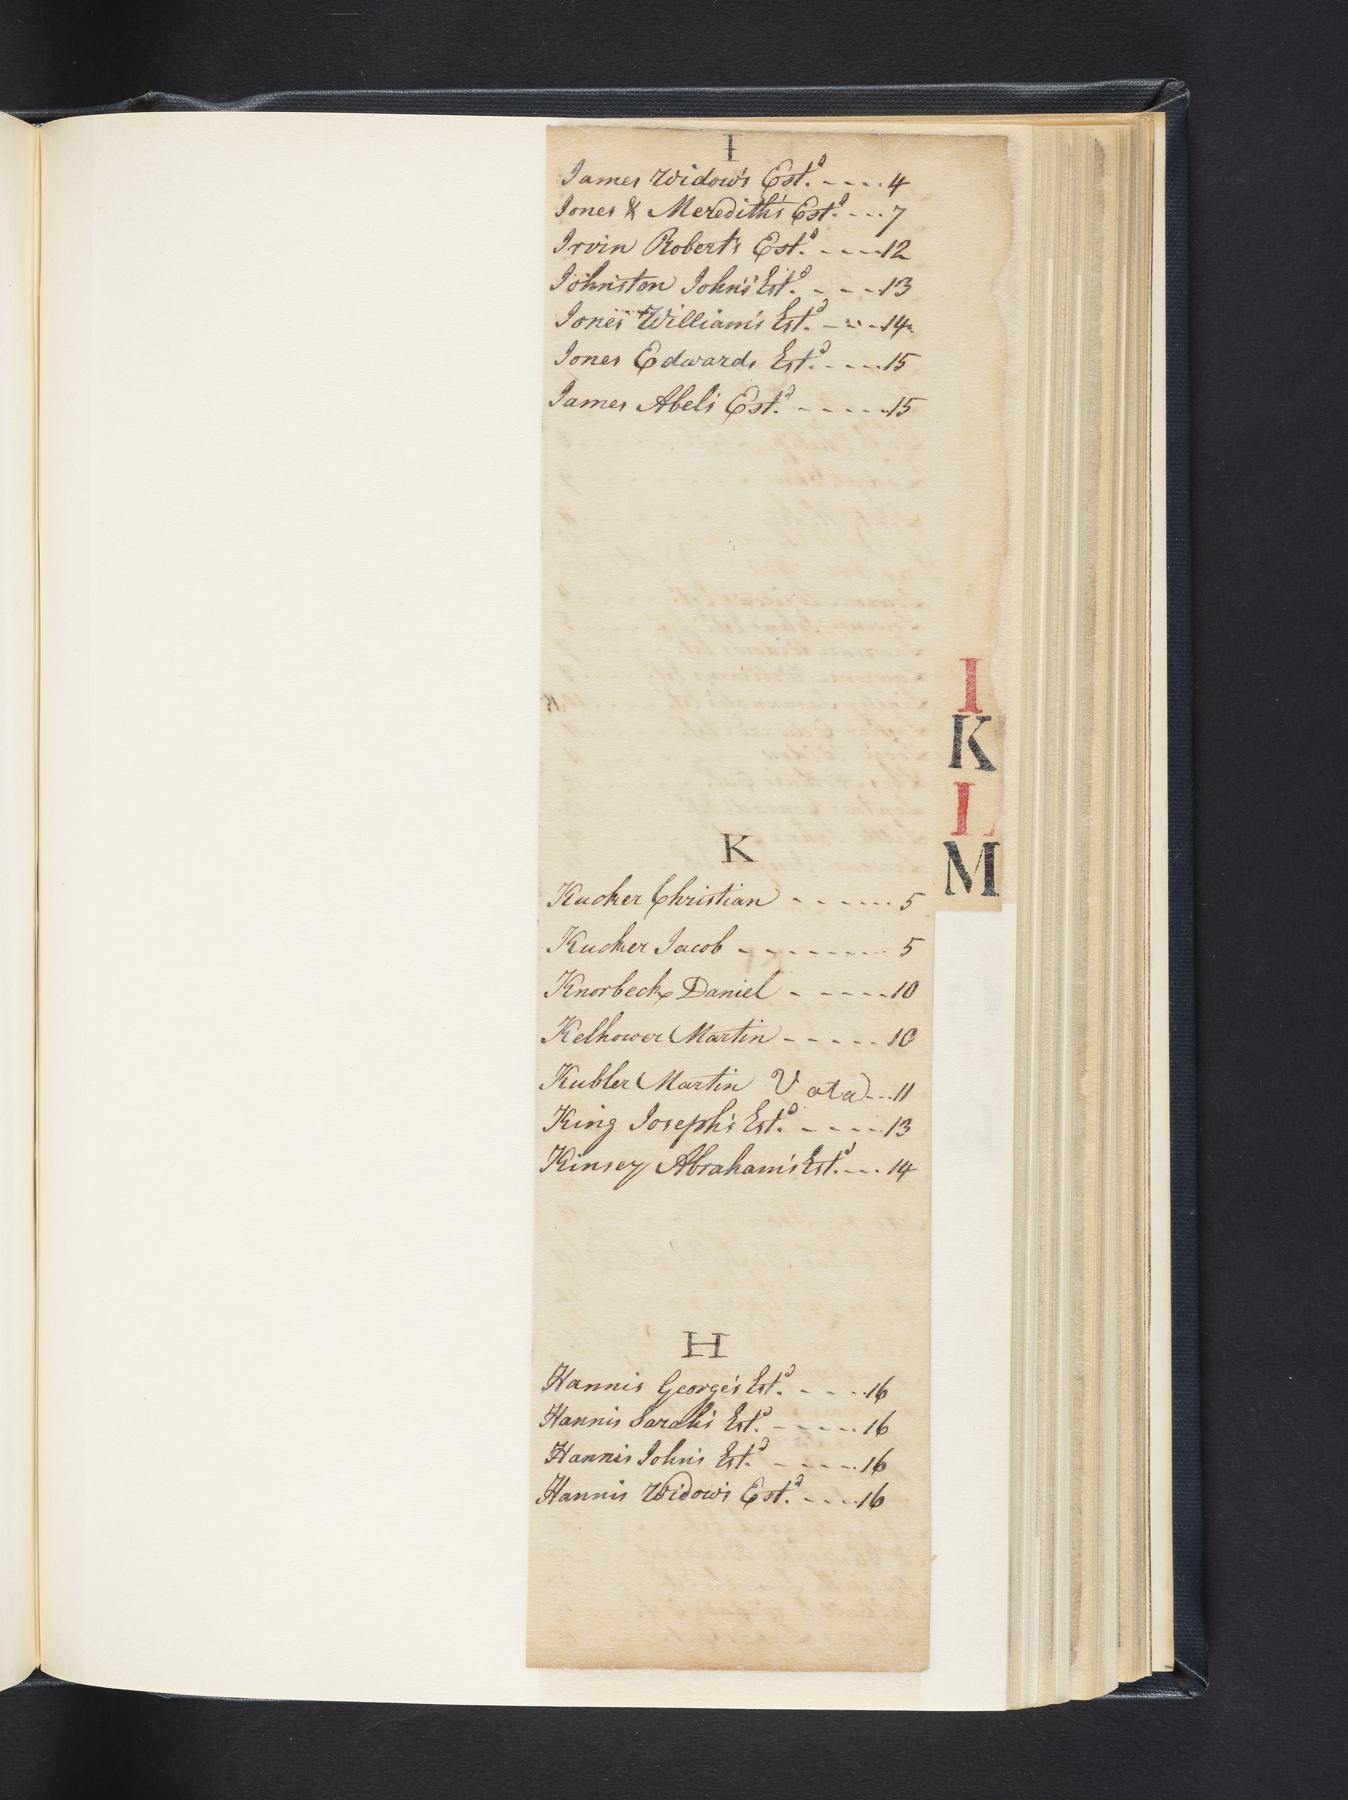 I
James Widow's Est.ᵈ - - - - 4
Jones & Meredith's Est.ᵈ - - - 7
Irvin Robert's Est.ᵈ - - - - 12
Johnston John's Est.ᵈ - - - 13
Jones William's Est.ᵈ - - - 14
Jones Edwards Est.ᵈ - - - - 15
James Abel's Est.ᵈ - - - - - 15
I
K
L
M
K
Kucker Christian - - - - - - 5
Kucker Jacob - - - - - - - - 5
Knorbeck Daniel - - - - - 10
Kelhower Martin - - - - - 10
Kubler Martin - - - 11
King Joseph's Est.ᵈ - - - - - 13
Kinsey Abraham's Est.ᵈ - - - 14
H
Hannis George's Est.ᵈ - - - - 16
Hannis Sarah's Est.ᵈ - - - - - 16
Hannis John's Est.ᵈ - - - - - 16
Hannis Widow's Est.ᵈ - - - - 16